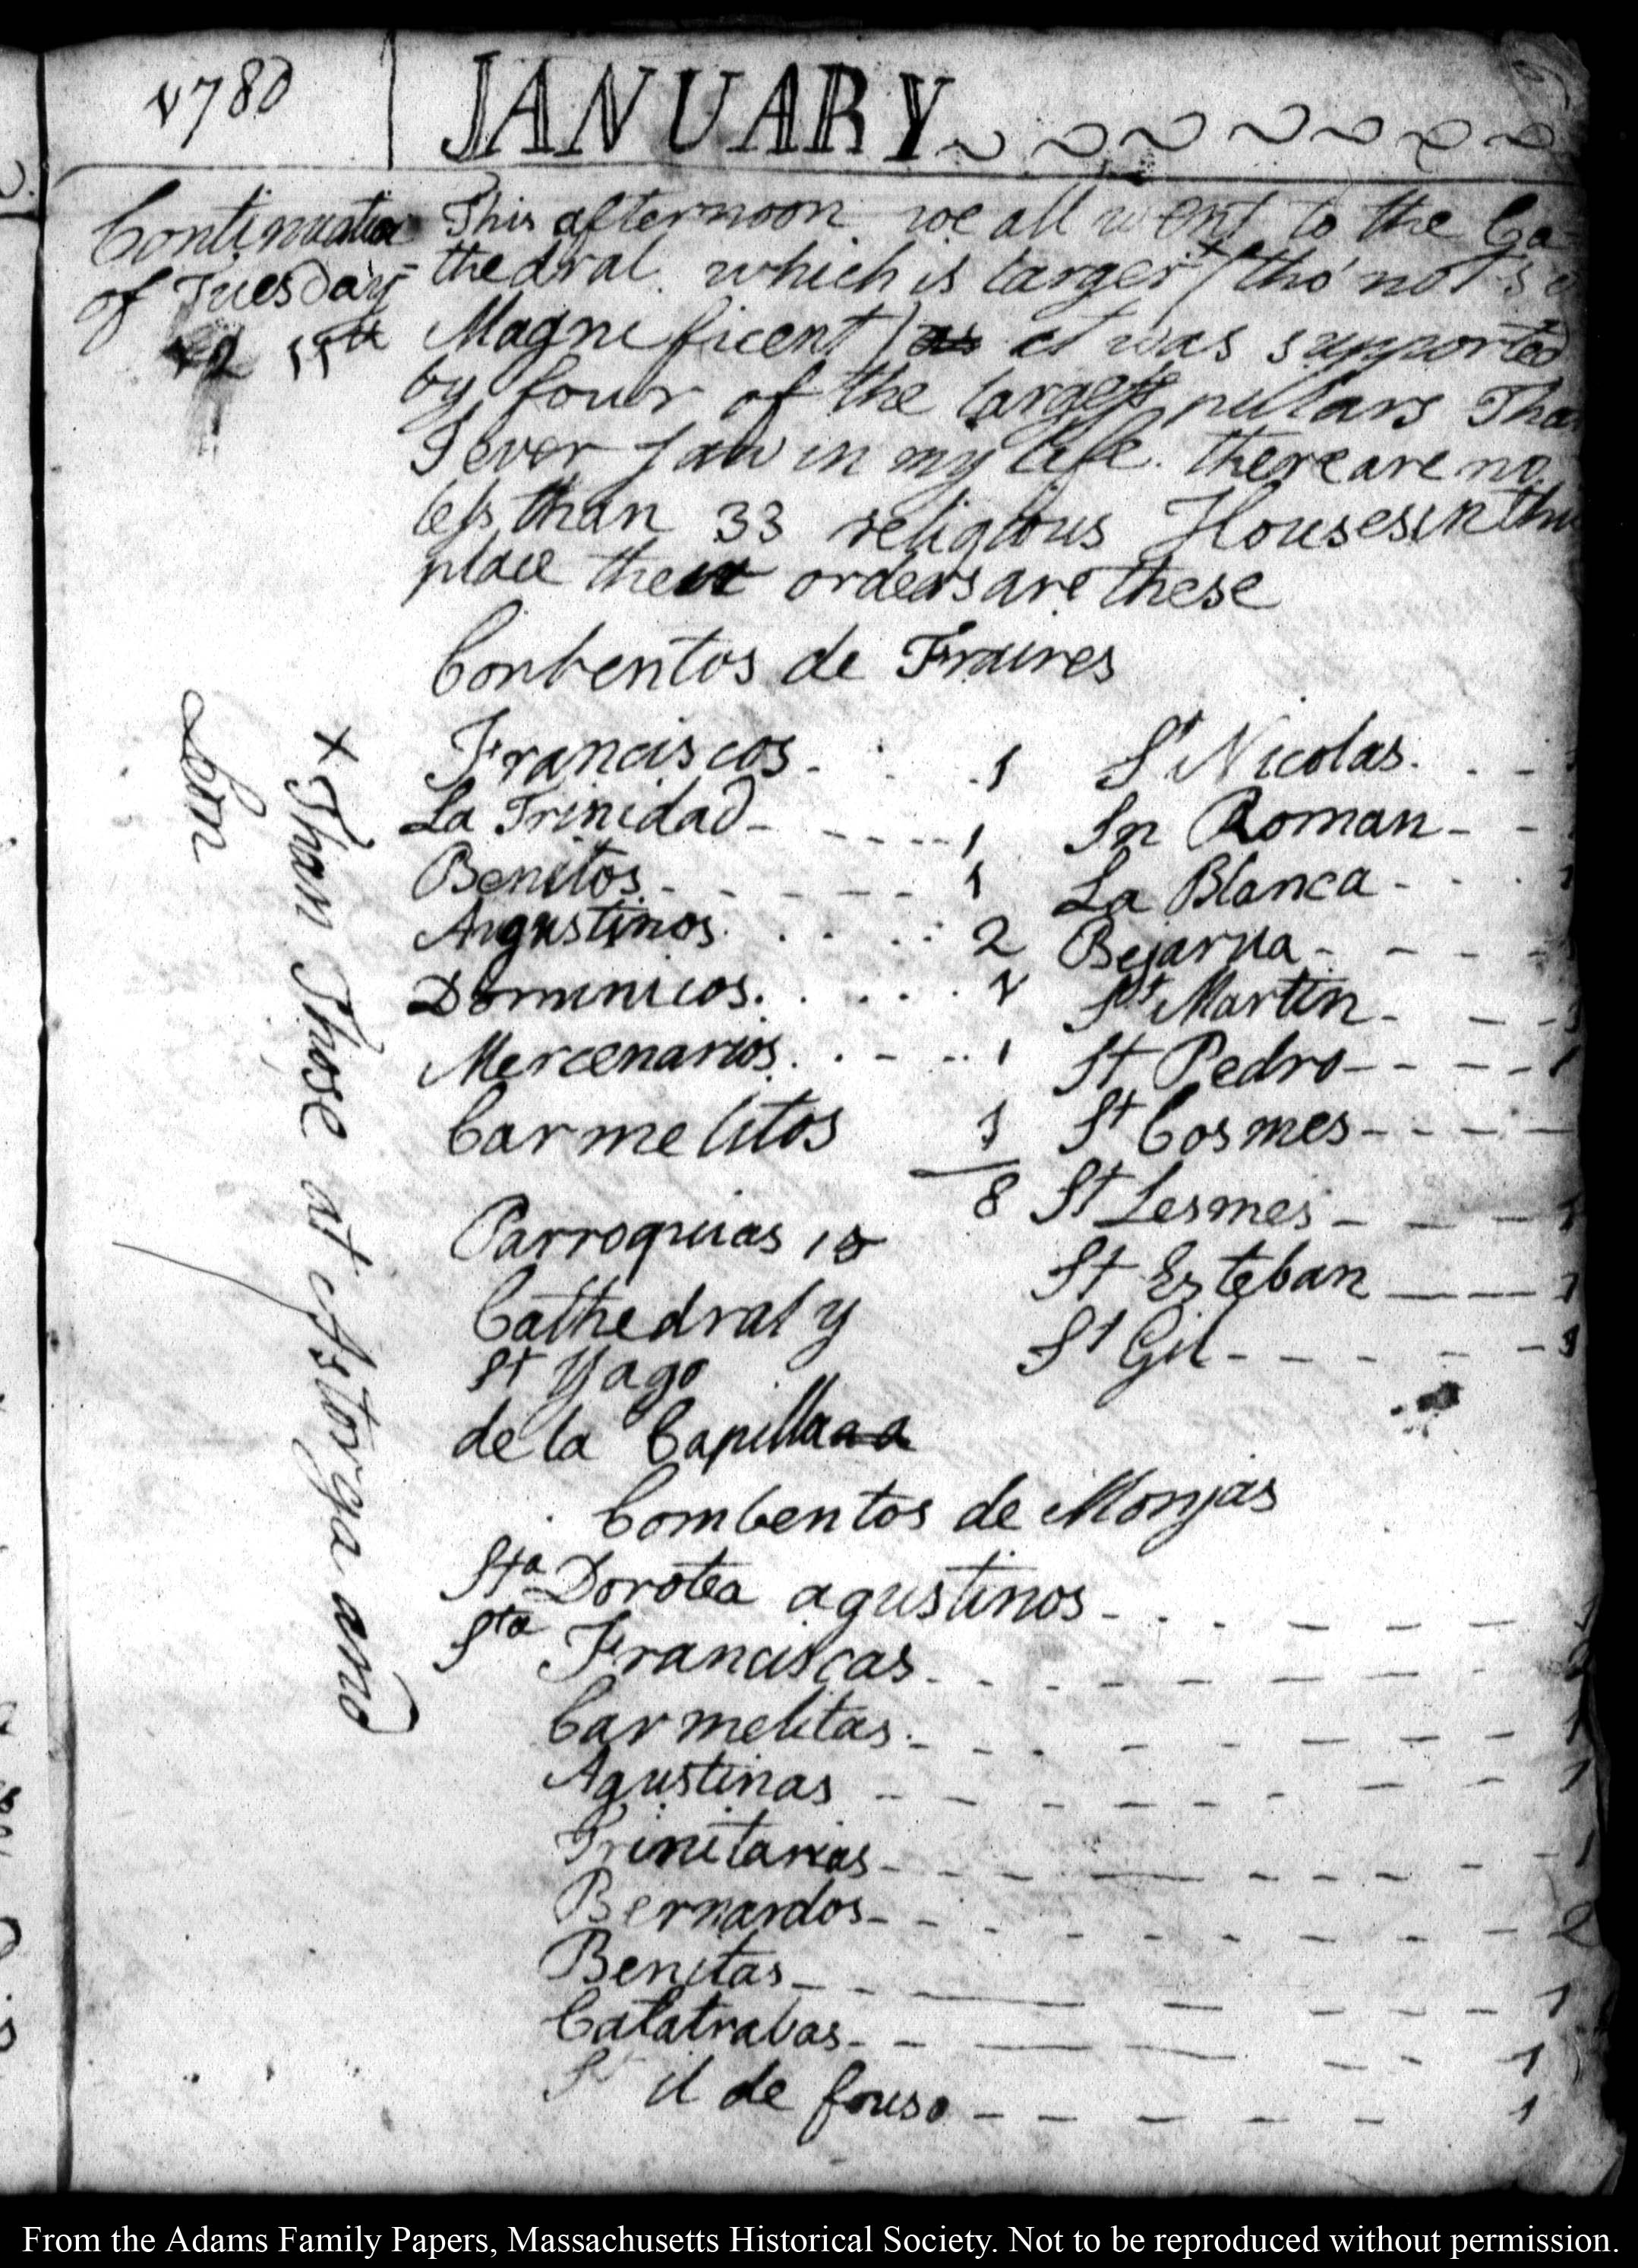 1780
JANUARY
Continuation
of Tuesday
11th
This afternoon we all went to the Ca=
thedral which is larger + (tho' not so
Magnificent) as it was supported
by four of the largest pillars That
I ever saw in my life. there are no
less than 33 religious Houses in this
place their orders are these
Conbentos de Fraires
Franciscos - - - 1
La Trinidad - - - 1
Benitos - - - 1
Augustinos - - - 2
Dominicos - - - 1
Mercenarios - - - 1
Carmelitos 1
8
Parroquias 15
Cathedral y
St Yago
de la Capilla
St Nicolas
Sn Roman
La Blanca
Bejarua
St Martin
St Pedro - - - 1
St Cosmes
St Lesmes - - - 1
St Esteban - - - 1
St Gil - - - 1
Combentos de Monjas
Sta Dorotea agustinos
Sta Franciscas
Carmelitas - - - 1
Agustinas - - - 1
Trinitarias - - - 1
Bernardos - - - 2
Benitas - - - 1
Calatrabas - - - 1
St il de fouso - - - 1
+ Than Those at Astorga and
Leon
From the Adams Family Papers, Massachusetts Historical Society. Not to be reproduced without permission.